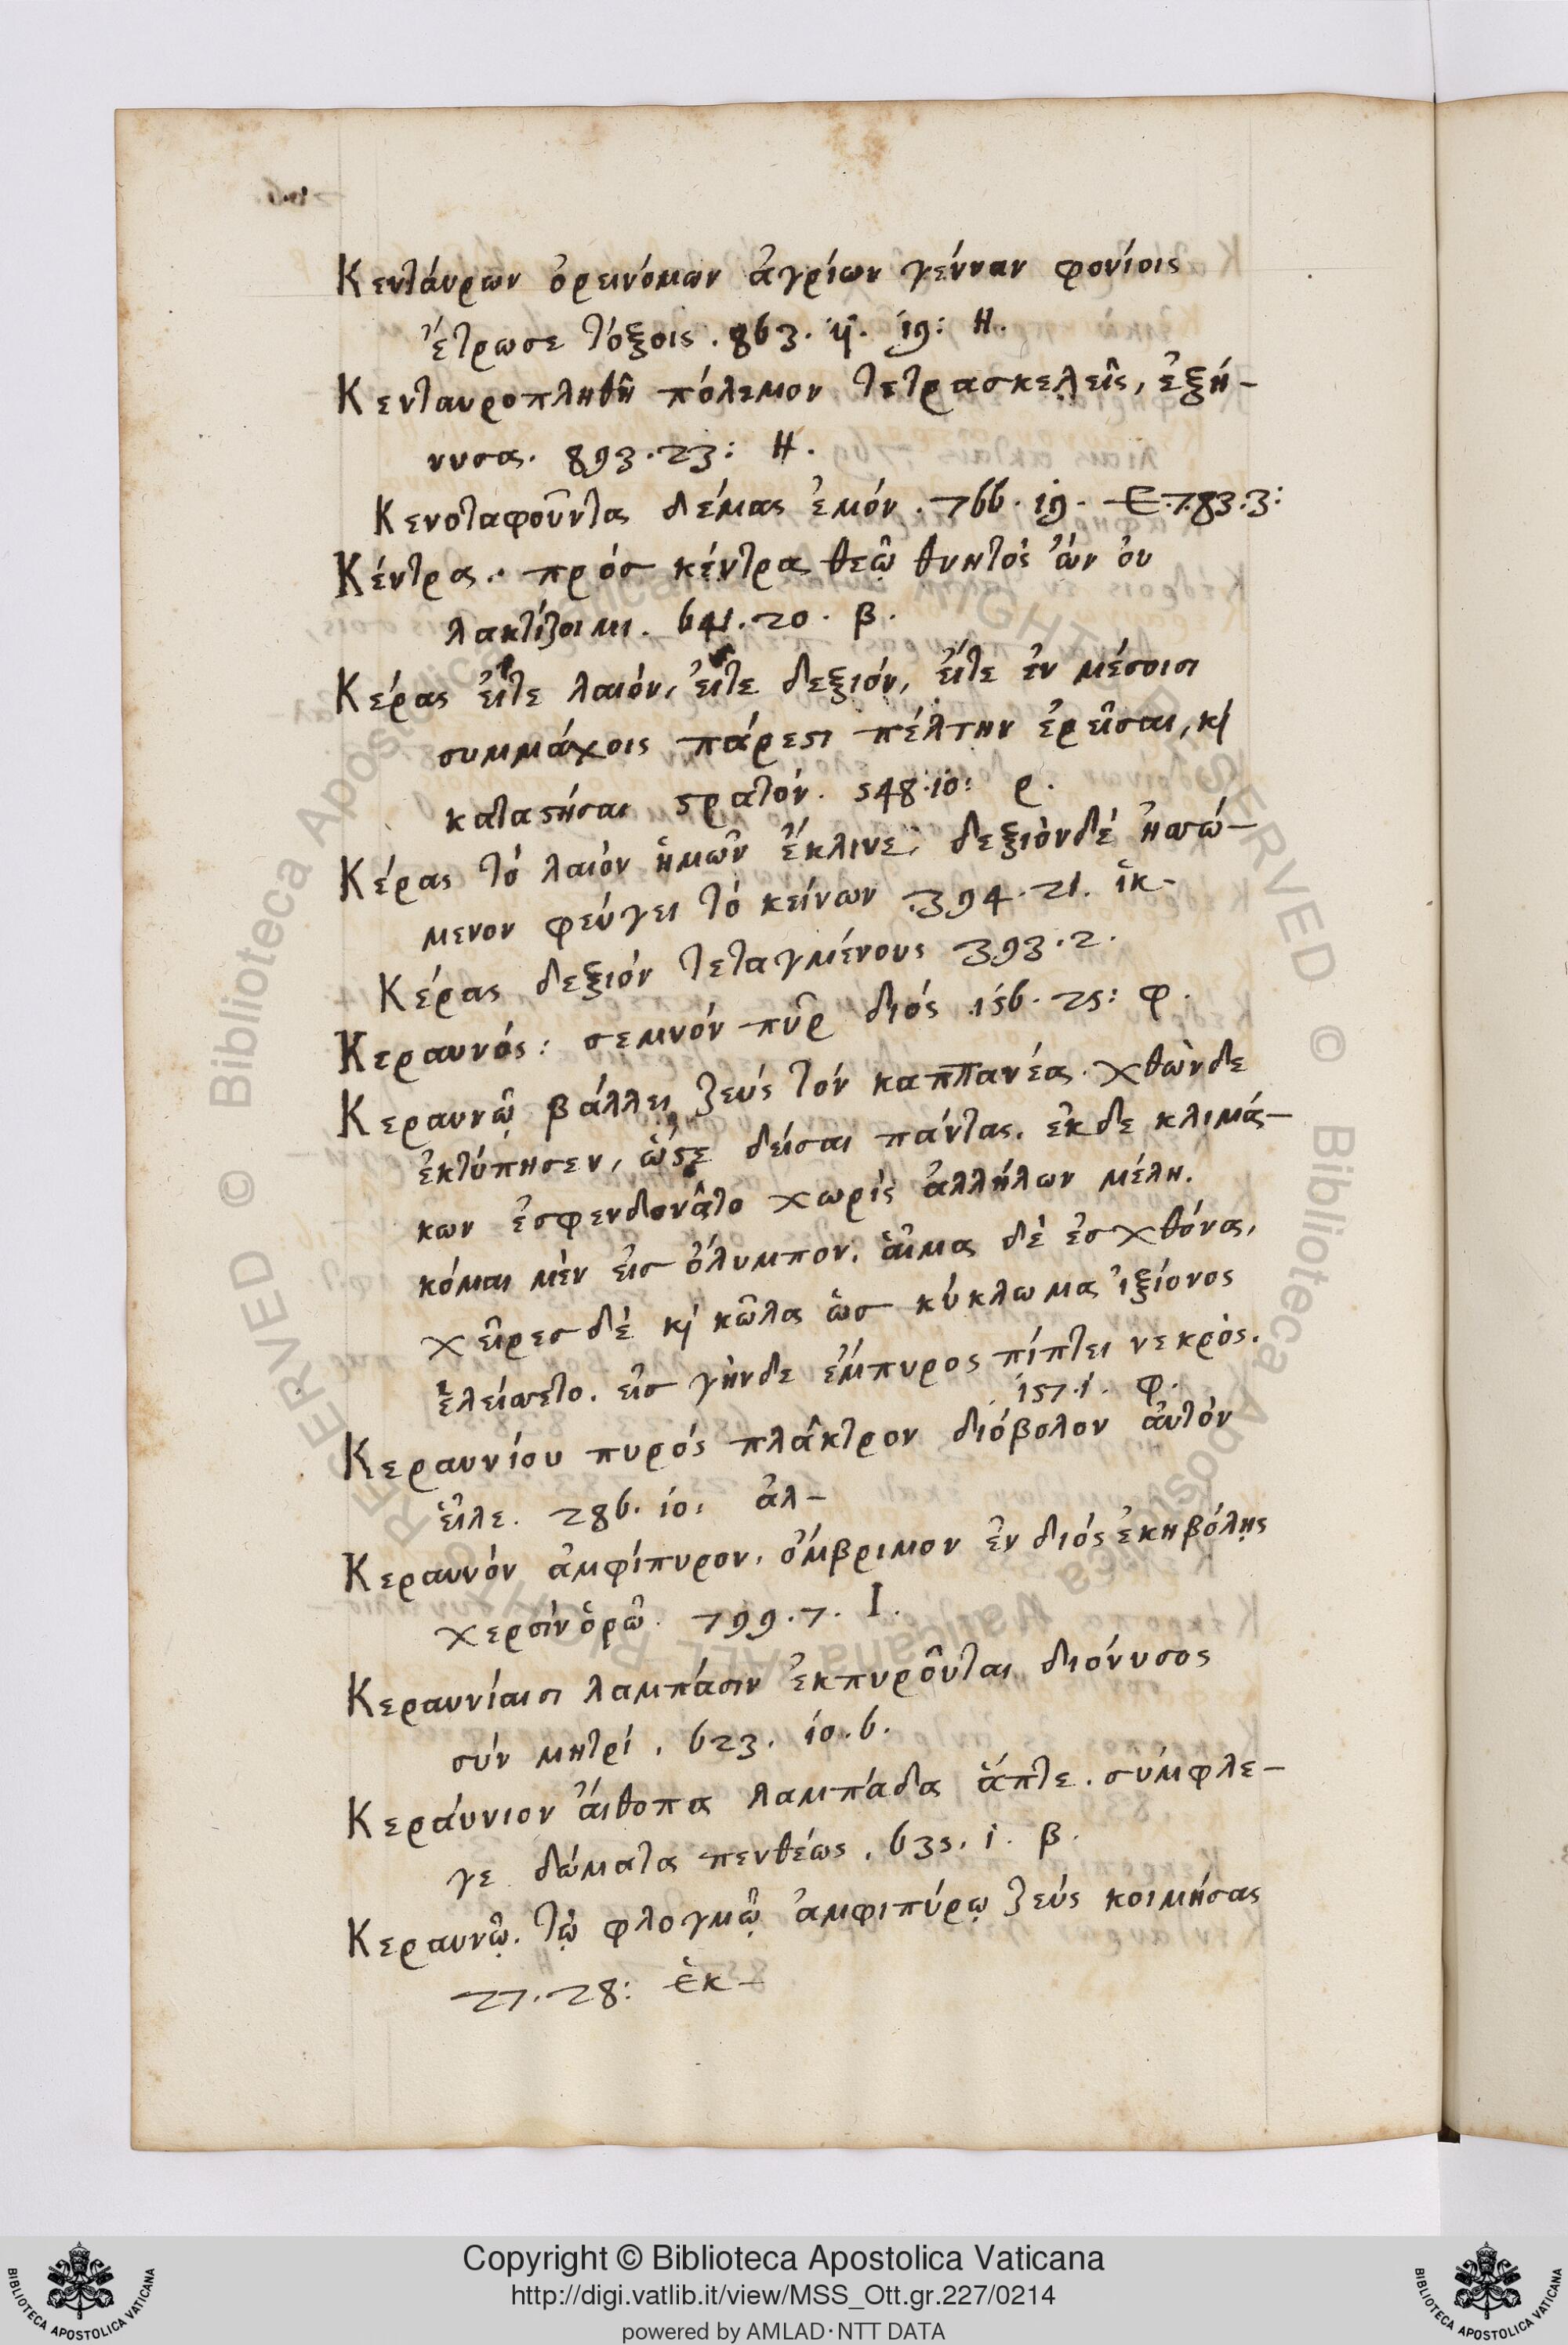 Κενταύρων ὀρεινόμων ἀγρίων γένναν φονίοις
ἔτρωσε τόξοις. 863. 19: Η.
Κενταυροπληθῆ πόλεμον τετρασκελεῖς, ἐξή-
νυσα. 893.23: Η.
Κενοταφοῦντας δέμας ἐμόν. 766. 19. Ε.783.3:
Κέντρα. πρόσ κέντρα θεῷ θνητὸς ὢν οὐ
λακτίζοιμι. 641.20. β.
Κέρας εἴτε λαιόν, εἴτε δεξιόν, εἴτε ἐν μέσοισι
συμμάχοις πάρεστι πέλτην ἐρεῖσαι, κὶ
καταστήσαι στρατόν. 548.10: ρ.
Κέρας τό λαιόν ἡμῶν ἔκλινε, δεξιὸνδέ ἡσσώ-
μενον φεύγει τό κείνων .394.21. ἱκ-
Κέρας δεξιόν τεταγμένους 393.2.
Κεραυνός: σεμνόν πῦρ διός .156.25: φ.
Κεραυνῷ βάλλει ζεύς τόν καππανέα. χθὼνδε
ἐκτύπησεν, ὥστε δείσαι πάντας. ἐκ δε κλιμά-
κων ἐσφενδονᾶτο χωρίς ἀλλήλων μέλη.
κόμαι μὲν εἰσ ὄλυμπον. αἷμα δέ ἐσ χθόνα,
χεῖρεσ δέ κὶ κῶλα ὡσ κύκλωμα ἰξίονος
ἑλείσσετο. εἰσ γὴνδε ἔμπυρος πίπτει νεκρὸς.
157.1. φ.
Κεραυνίου πυρός πλᾶκτρον διόβολον αὐτόν
εἷλε. 286. 10: ἀλ-
Κεραυνόν ἀμφίπυρον, ὄμβριμον ἐν διός ἑκηβόλῃς
χερσίν ὁρῶ. 799.7. Ι.
Κεραυνίαισι λαμπάσιν ἐκπυροῦται διόνυσος
σύν μητρί. 623. 10.6.
Κεράυνιον αἴθοπα λαμπάδα ἅπτε. σύμφλε-
γε δώματα πενθέως. 635. 1. β.
Κεραυνῷ. τῷ φλογμῷ ἀμφιπύρῳ ζεύς κοιμήσας
27.28: ἑκ-
Copyright © Biblioteca Apostolica Vaticana
http://digi.vatlib.it/view/MSS_Ott.gr.227/0214
powered by AMLAD·NTT DATA